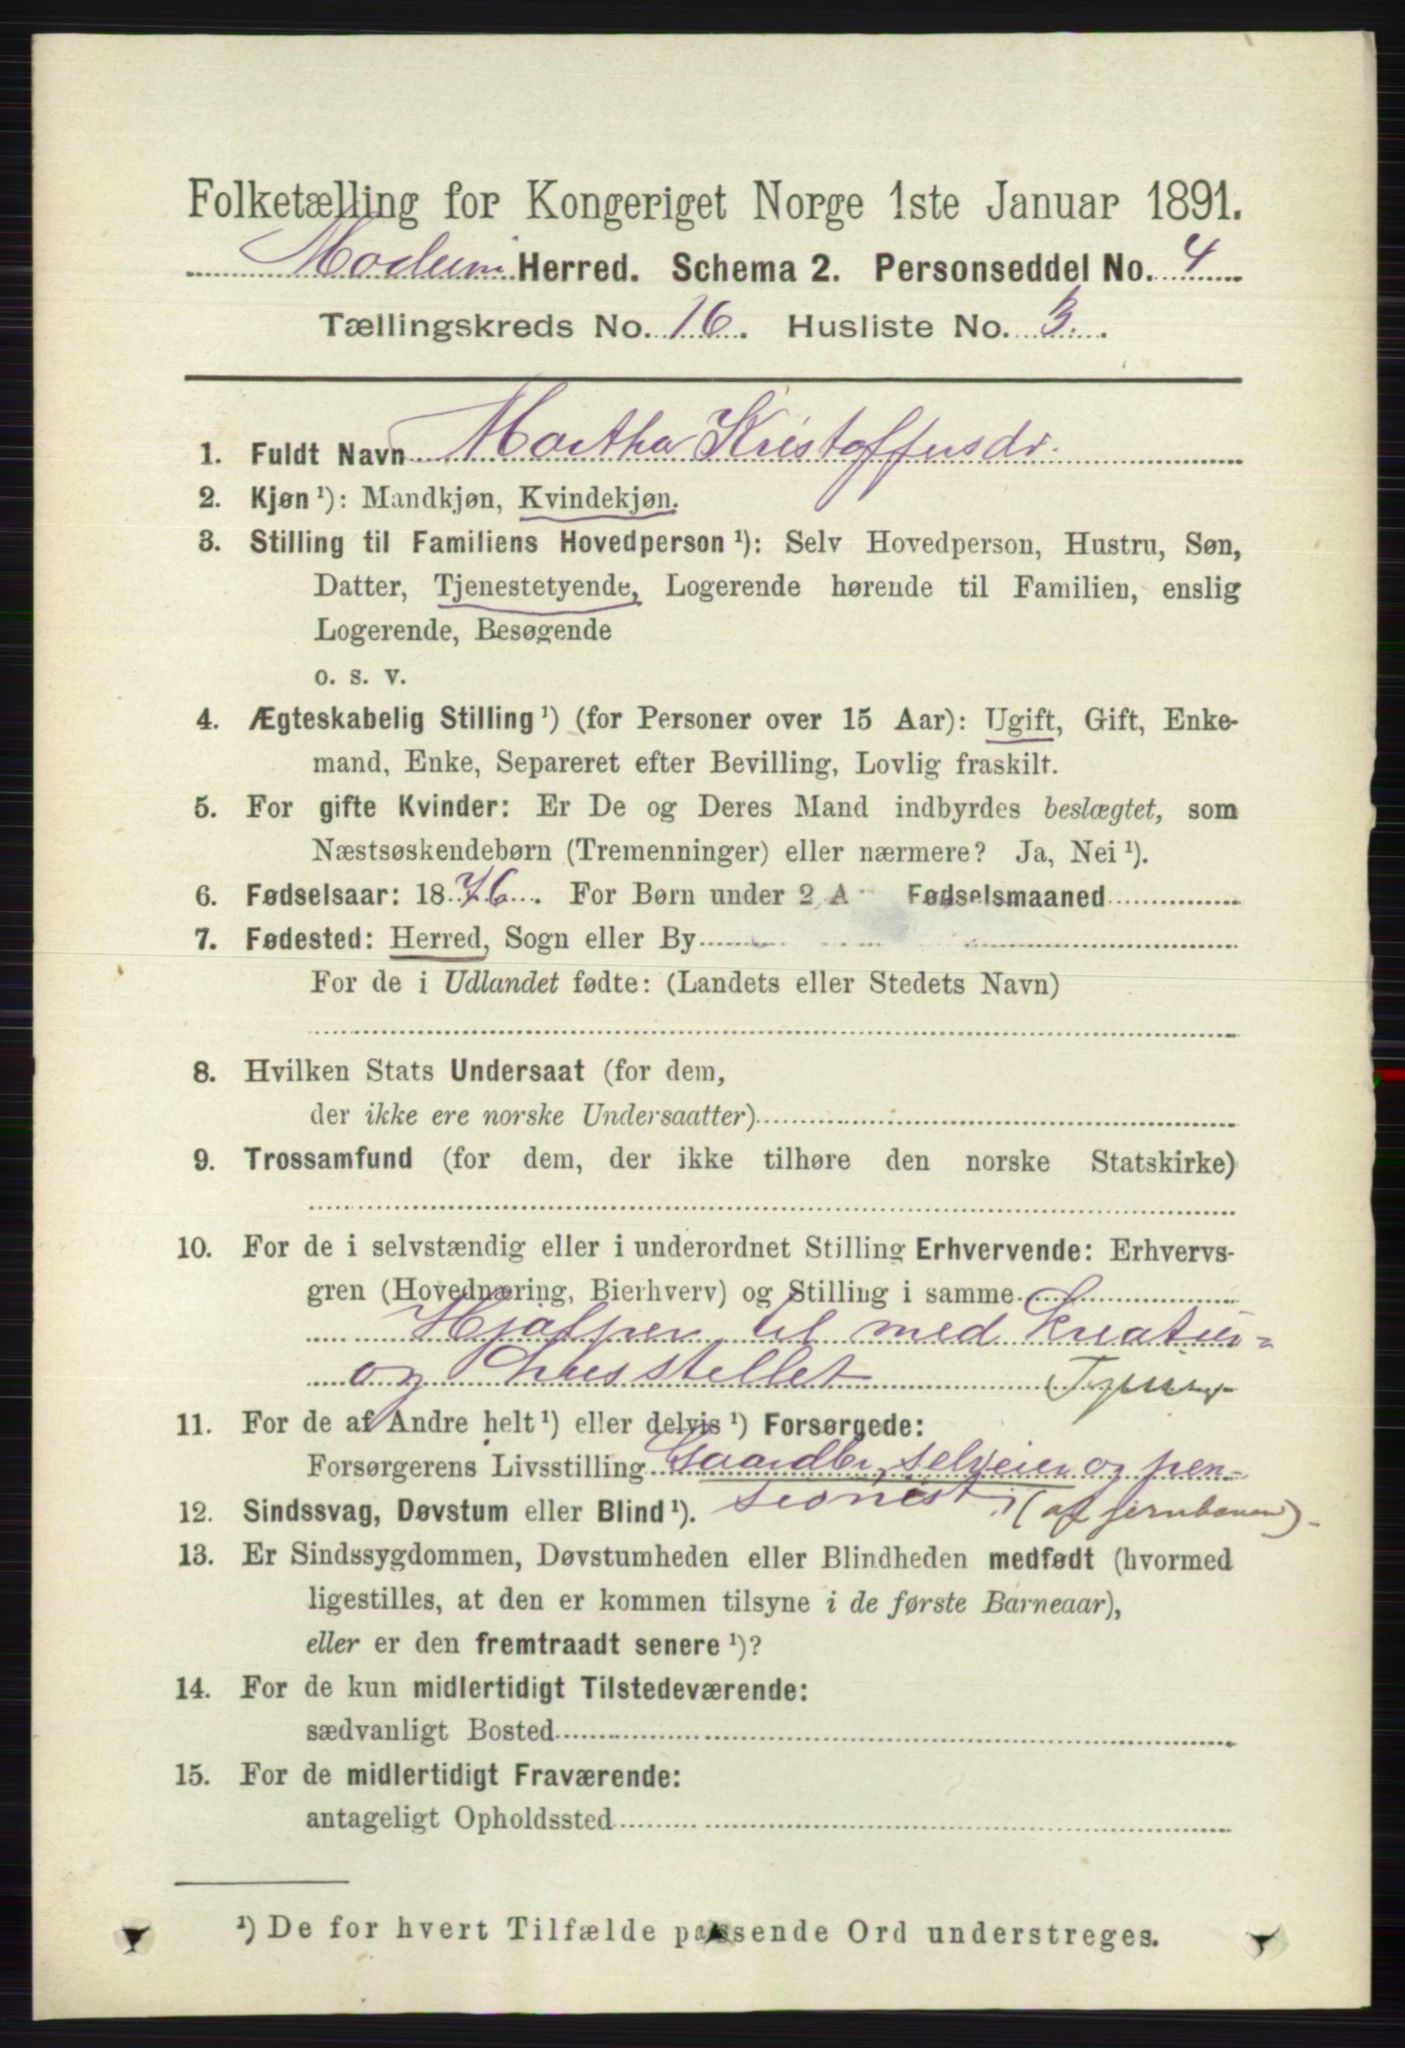 Folketælling for Kongeriget Norge 1ste Januar 1891.
Modum Herred. Schema 2. Personseddel No. 4
Tællingskreds No. 16. Husliste No. 3.
1. Fuldt Navn Martha Kristoffersdr.
2. Kjøn ¹): Mandkjøn, Kvindekjøn.
3. Stilling til Familiens Hovedperson ¹): Selv Hovedperson, Hustru, Søn,
Datter, Tjenestetyende, Logerende hørende til Familien, enslig
Logerende, Besøgende
o. s. v.
4. Ægteskabelig Stilling ¹) (for Personer over 15 Aar): Ugift, Gift, Enke-
mand, Enke, Separeret efter Bevilling, Lovlig fraskilt.
5. For gifte Kvinder: Er De og Deres Mand indbyrdes beslægtet, som
Næstsøskendebørn (Tremenninger) eller nærmere? Ja, Nei ¹).
6. Fødselsaar: 1876. For Børn under 2 A Fødselsmaaned
7. Fødested: Herred, Sogn eller By
For de i Udlandet fødte: (Landets eller Stedets Navn)
8. Hvilken Stats Undersaat (for dem,
der ikke ere norske Undersaatter)
9. Trossamfund (for dem, der ikke tilhøre den norske Statskirke)
10. For de i selvstændig eller i underordnet Stilling Erhvervende: Erhvervs-
gren (Hovednæring, Bierhverv) og Stilling i samme
Hjælper til med Kreatur-
og husstellet
11. For de af Andre helt ¹) eller delvis ¹) Forsørgede:
Forsørgerens Livsstilling Gaardbr, selveier og pen-
12. Sindssvag, Døvstum eller Blind ¹). sionist (af jernbanen)
13. Er Sindssygdommen, Døvstumheden eller Blindheden medfødt (hvormed
ligestilles, at den er kommen tilsyne i de første Barneaar),
eller er den fremtraadt senere ¹)?
14. For de kun midlertidigt Tilstedeværende:
sædvanligt Bosted
15. For de midlertidigt Fraværende:
antageligt Opholdssted
¹) De for hvert Tilfælde passende Ord understreges.